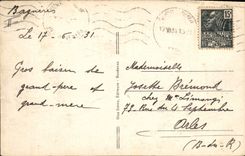 Bagnères
Le 17-6-31
Gros baisers de
grand-père et
grand-mère
15
Mademoiselle
Josette Brémond
chez Mr Limongi
73 Rue du 4 Septembre
Arles
B-du-R